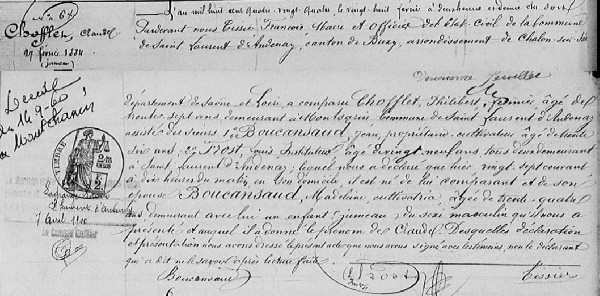 N° 67
Chofflet, Claudel
27 février 1884
(jumeau)
L'an mil huit cent quatre-vingt-quatre, le vingt-huit février à deux heures du soir
Pardevant nous Tessier François, Maire et Officier de l'état-civil de la commune
de Saint Laurent d'Andenay, canton de Buxy, arrondissement de Chalon-sur-Saône
Deuxième feuillet
Département de Saône et Loire, a comparu Chofflet, Philibert, âgé de
trente sept ans, demeurant à commune de Saint Laurent d'Andenay
assisté des sieurs 1° Boucansaud, Jean, propriétaire cultivateur âgé de trente
six ans, 2° Prost, Louis Instituteur âgé de vingt neuf ans tous deux demeurant
à Saint Laurent d'Andenay; lequel nous a déclaré que hier vingt sept courant
à dix heures du matin en son domicile il est né de lui comparant et de son
épouse Boucansaud, Madeleine, cultivatrice, âgée de trente-quatre
ans demeurant avec lui un enfant (jumeau) du sexe masculin qu'il nous a
présenté et auquel il a donné le prénom de Claudel. Desquelles déclaration
et présentation nous avons dressé le présent acte que nous avons signé avec les témoins, non le déclarant
qui a dit ne le savoir après lecture faite.
Boucansaud
Prost
Tessier
Décédé
le 14-9-60
à Montchanin
TIMBRE
St Laurent d'Andenay
7 Avril